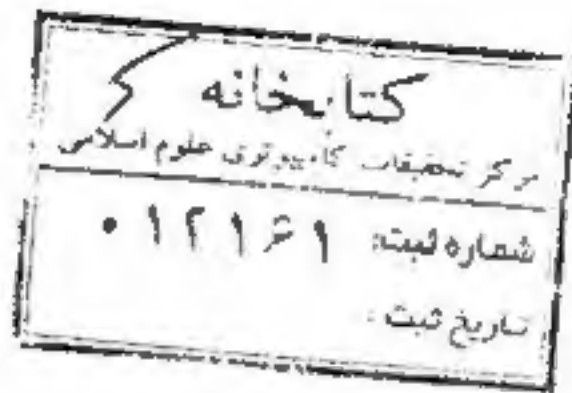 کتابخانه
مرکز تحقیقات کامپیوتری علوم اسلامی
شماره ثبت: ۰۱۲۱۶۱
تاریخ ثبت: